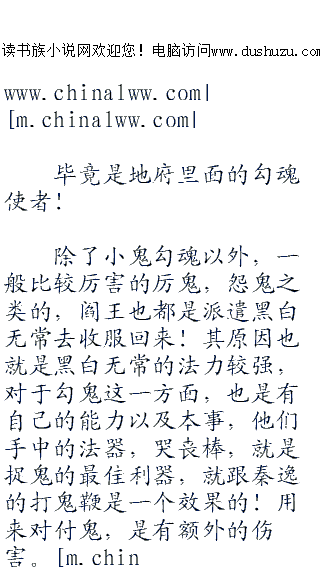 读书族小说网欢迎您！电脑访问www.dushuzu.com
www.chinalww.com|
[m.chinalww.com|
毕竟是地府里面的勾魂
使者！
除了小鬼勾魂以外，一
般比较厉害的厉鬼，怨鬼之
类的，阎王也都是派遣黑白
无常去收服回来！其原因也
就是黑白无常的法力较强，
对于勾鬼这一方面，也是有
自己的能力以及本事，他们
手中的法器，哭丧棒，就是
捉鬼的最佳利器，就跟秦逸
的打鬼鞭是一个效果的！用
来对付鬼，是有额外的伤
害。[m.chin